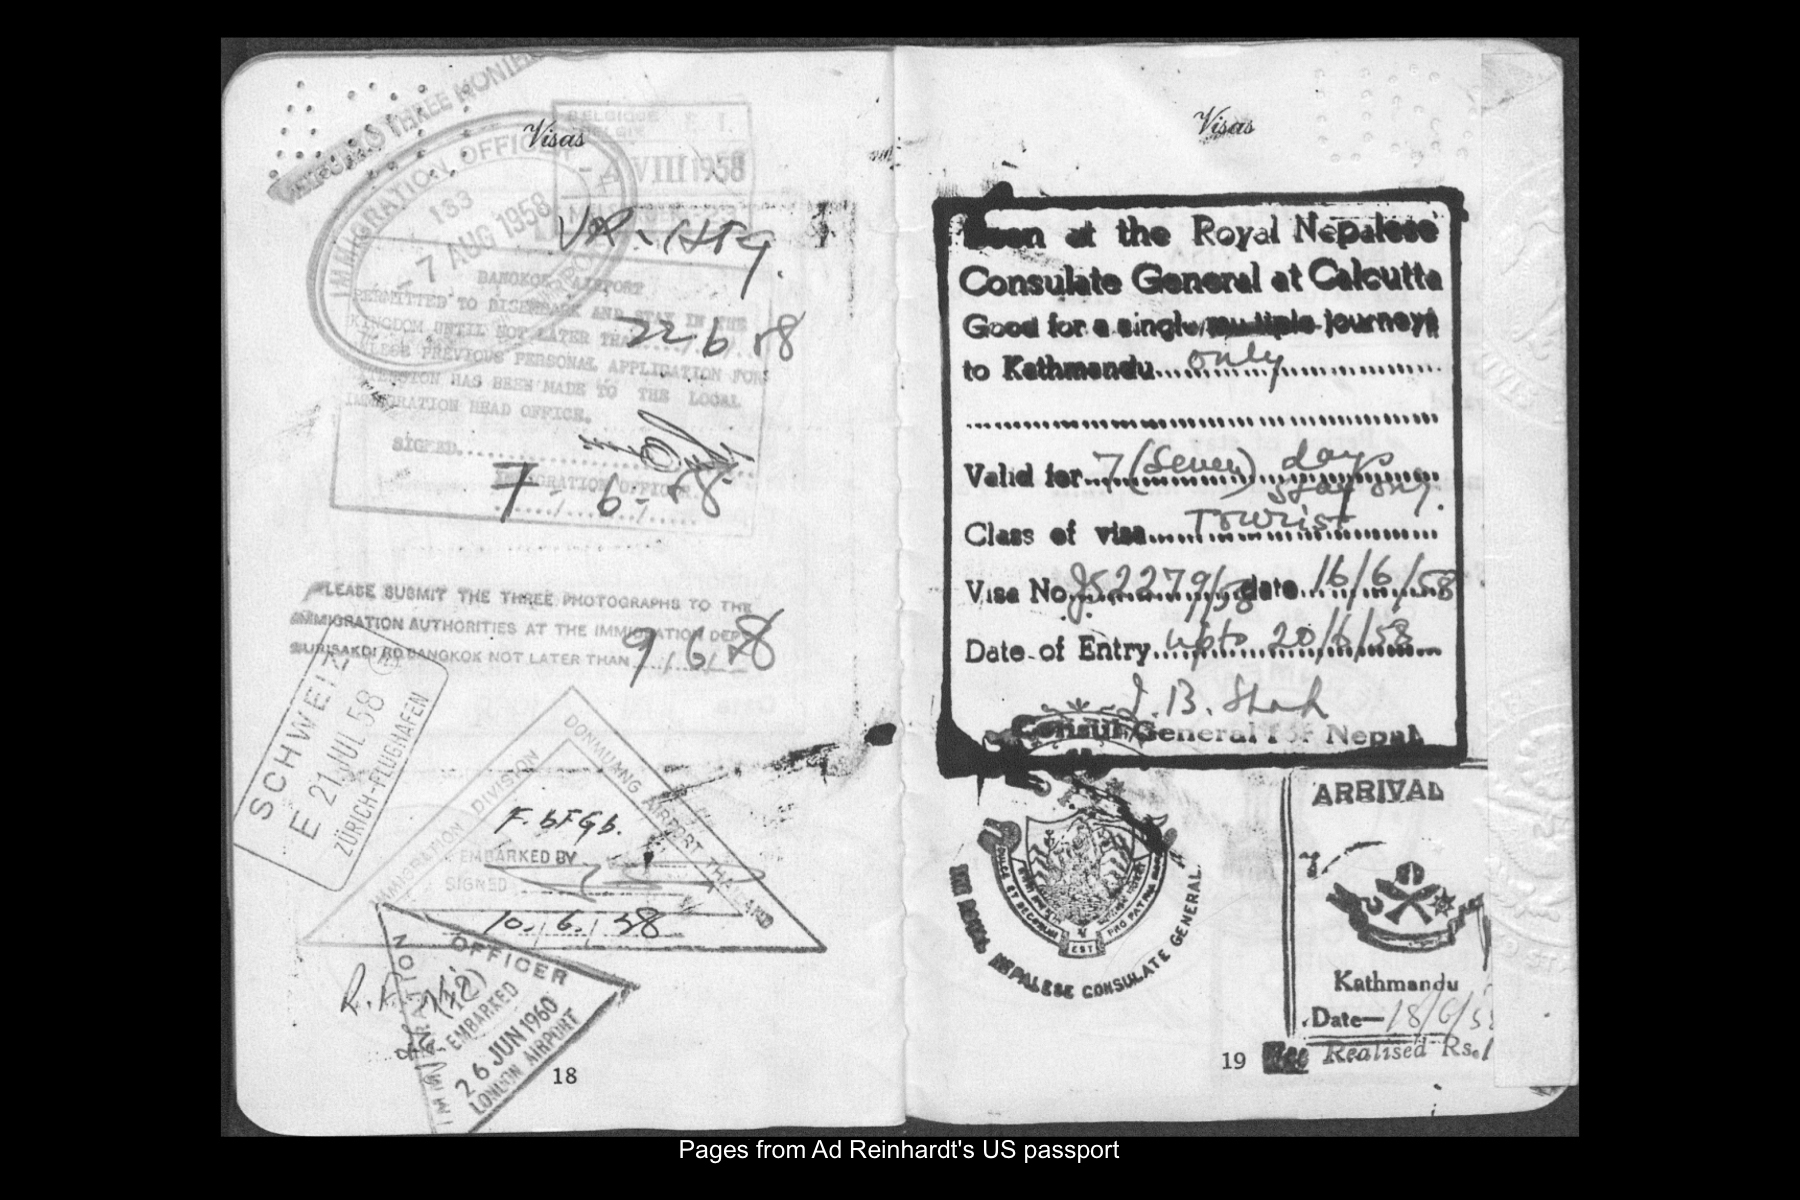 Visas
THREE MONTHS
IMMIGRATION OFFICER
133
7 AUG 1958
BELGIQUE
E I.
- 4 VIII 1958
BANGKOK AIRPORT
PERMITTED TO DISEMBARK AND STAY IN THE
KINGDOM UNTIL NOT LATER THAN 22 6 58
UNLESS PREVIOUS PERSONAL APPLICATION FOR
EXTENSION HAS BEEN MADE TO THE LOCAL
IMMIGRATION HEAD OFFICE.
SIGNED
IMMIGRATION OFFICER
7 - 6 - 58
PLEASE SUBMIT THE THREE PHOTOGRAPHS TO THE
IMMIGRATION AUTHORITIES AT THE IMMIGRATION DEPT
BANGKOK NOT LATER THAN 9/6/58
SCHWEIZ
E 21. JUL 58
ZÜRICH-FLUGHAFEN
IMMIGRATION DIVISION
DONMUANG AIRPORT THAILAND
EMBARKED BY
SIGNED
10. 6. 58
IMMIGRATION OFFICER
(12)
EMBARKED
26 JUN 1960
LONDON AIRPORT
18
Visas
Seen at the Royal Nepalese
Consulate General at Calcutta
Good for a single/multiple journeys
to Kathmandu only
Valid for 7 (Seven) days
stay only.
Class of visa Tourist
Visa No. 2279/58 date 16/6/58
Date of Entry upto 20/6/58
J. B. Shah
Consul General for Nepal
DULCE ET DECORUM
EST
PRO PATRIA MORI
THE ROYAL NEPALESE CONSULATE GENERAL.
ARRIVAL
Kathmandu
Date— 18/6/5
19
Fee Realised Rs.
Pages from Ad Reinhardt's US passport